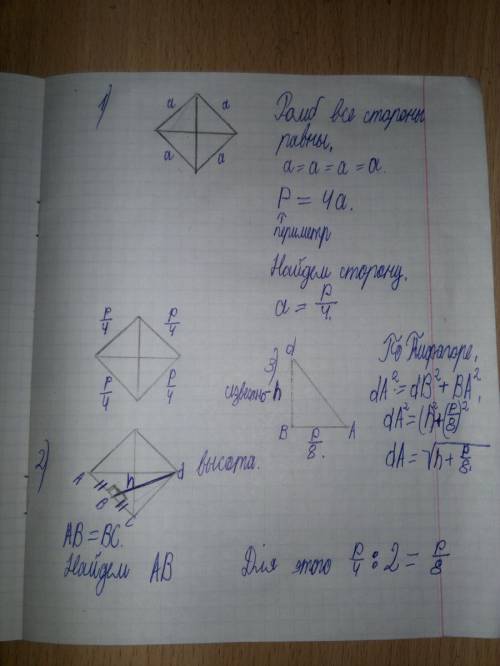 1)
a a
a a
Ромб все стороны
равны,
a = a = a = a.
P = 4a.
Периметр
Найдем сторону.
a = P/4.
P/4 P/4
P/4 P/4
3)
d
известно h
B P/8. A
По Пифагоре,
dA² = dB² + BA²,
dA² = (h² + (P/8)²
dA = √h + P/8.
2)
A B C d h
высота.
AB = BC.
Найдем AB
Для этого P/4 : 2 = P/8